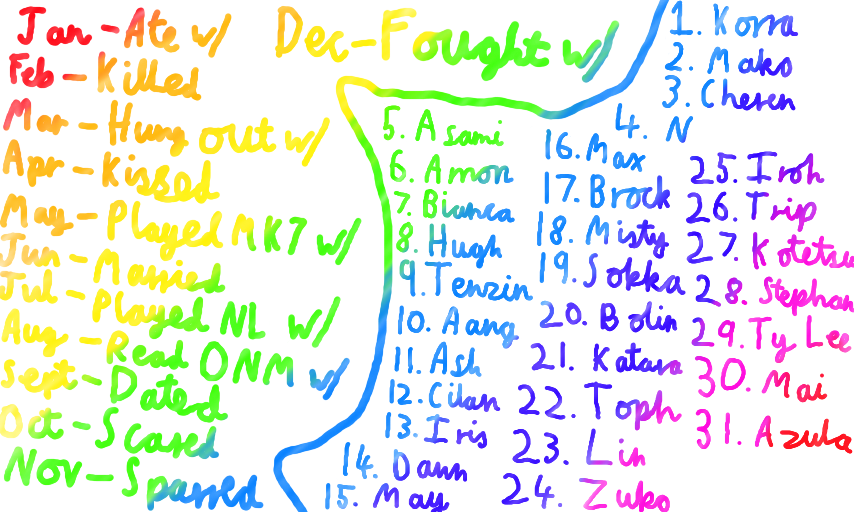 Jan - Ate w/
Feb - Killed
Mar - Hung out w/
Apr - Kissed
May - Played MK7 w/
Jun - Married
Jul - Played NL w/
Aug - Read ONM w/
Sept - Dated
Oct - Scared
Nov - Sparred
Dec - Fought w/
1. Korra
2. Mako
3. Cheren
4. N
5. Asami
6. Amon
7. Bianca
8. Hugh
9. Tenzin
10. Aang
11. Ash
12. Cilan
13. Iris
14. Dawn
15. May
16. Max
17. Brock
18. Misty
19. Sokka
20. Bolin
21. Katara
22. Toph
23. Lin
24. Zuko
25. Iroh
26. Trip
27. Kotetsu
28. Stephan
29. Ty Lee
30. Mai
31. Azula